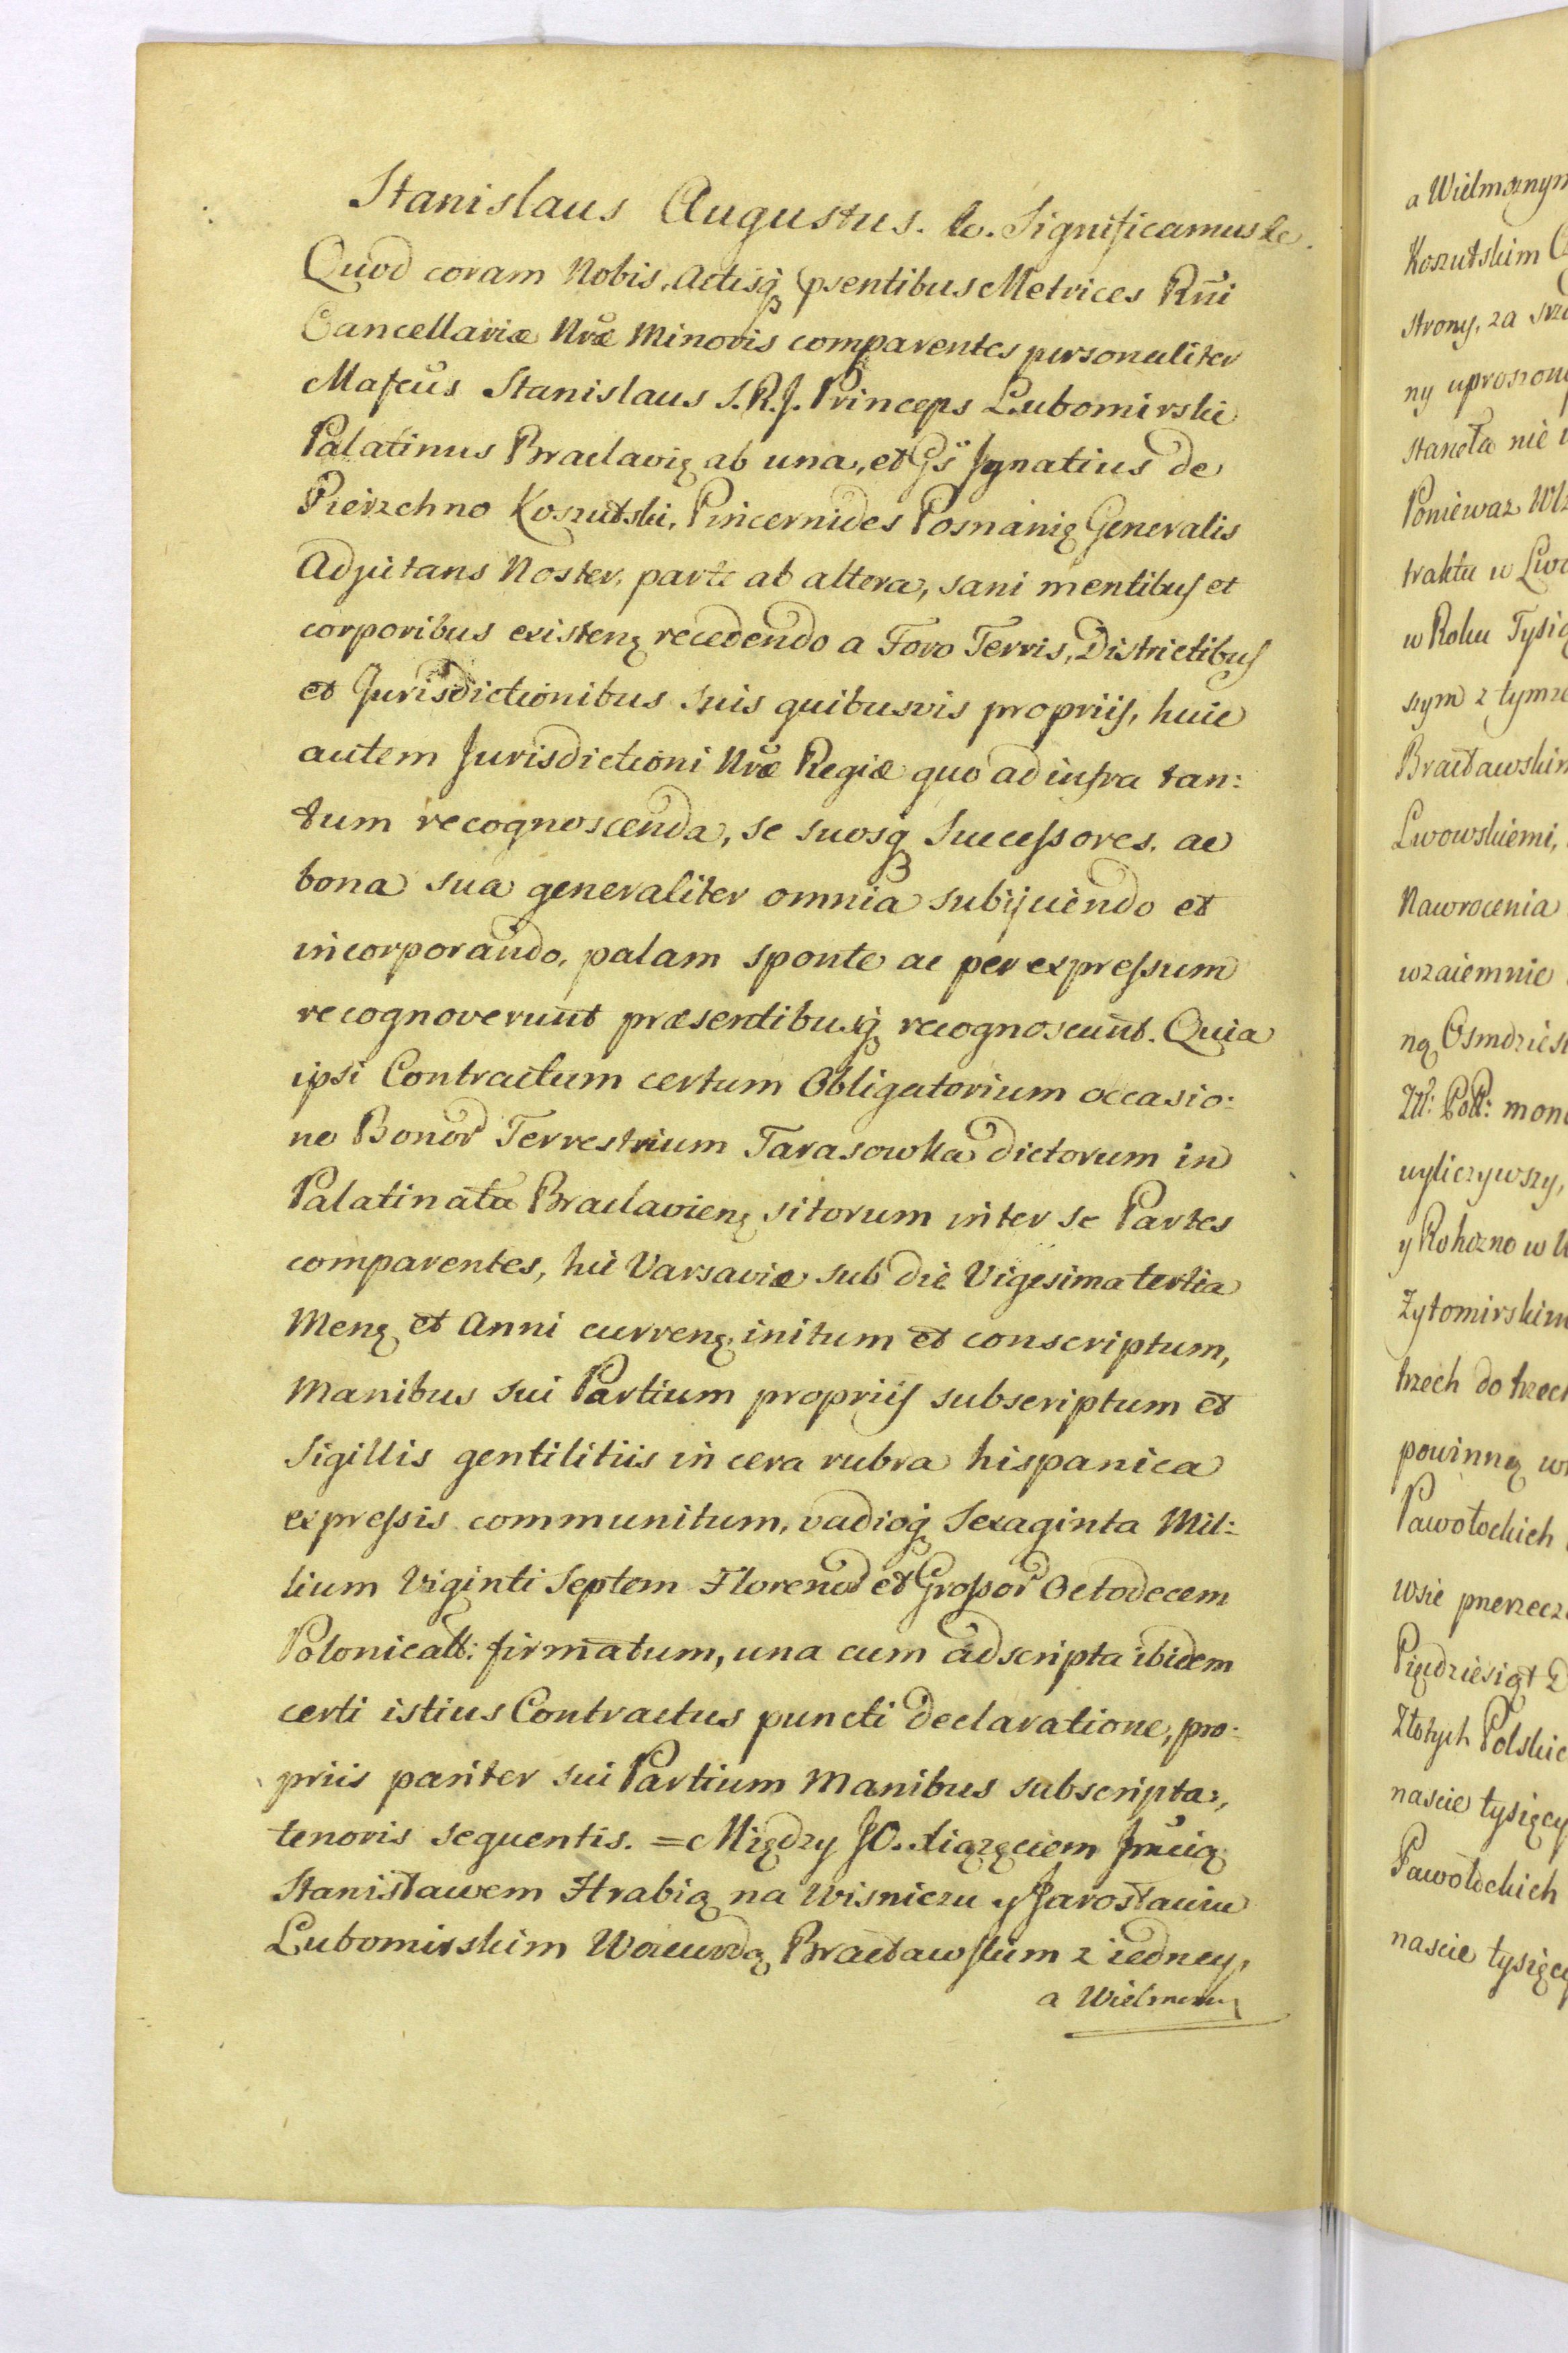 Stanislaus Augustus. &c. Significamus &c.
Quod coram Nobis, Actisq́ psentibus Metrices Rñi
Cancellariæ Nræ Minoris comparentes personaliter
Mafcus Stanislaus S.R.J. Princeps Lubomirski
Palatinus Braclavię ab una, et Gs̈ Ignatius de
Pierzchno Koszutski, Pincernides Posnanię Generalis
Adjutans Noster, parte ab altera, sani mentibus et
corporibus existenę recedendo a Foro Terris, Districtibus
et Jurisdictionibus suis quibusvis propriis, huic
autem Jurisdictioni Nræ Regiæ quo ad infra tan:
tum recognoscenda, se suosq́ Successores, ac
bona sua generaliter omnia subijciendo et
incorporando, palam sponte ac per expressum
recognoverunt præsentibusq́ recognoscunt. Quia
ipsi Contractum certum Obligatorium occasio:
ne Bonor Terrestrium Tarasowka dictorum in
Palatinatu Braclavienę sitorum inter se Partes
comparentes, hic Varsaviæ sub die Vigesima tertia
Menę et Anni currenę, initum et conscriptum,
Manibus sui Partium propriis subscriptum et
Sigillis gentilitiis in cera rubra hispanica
expressis communitum, vadioq́ Sexaginta Mil:
lium Viginti Septem Florenor et Grossor Octodecem
Polonicall: firmatum, una cum adscripta ibidem
certi istius Contractus puncti declaratione, pro:
priis pariter sui Partium Manibus subscripta,
tenoris sequentis. = Między JO. Xiążęciem Jmcią
Stanisławem Hrabią na Wisniczu y Jarosławiu
Lubomirskim Woiewodą Bracławskim z iedney,
a Wielmożn
a Wielmożnym
Koszutskim
strony, za
ny uproszony
staneła nie
Poniewaz
traktu w
w Roku
szym z tymze
Bracławskim
Lwowskiemi,
Nawrocenia
wzaiemnie
ną Osmdzies
Zll: Poll: mone
wyliczywszy,
y Rohozno w
Zytomirskim
trzech do trzech
powinną
Pawołockich
wsie
Pięcdziesiąt
Złotych Polskic
nascie tysięcy
Pawołockich
nascie tysięcy